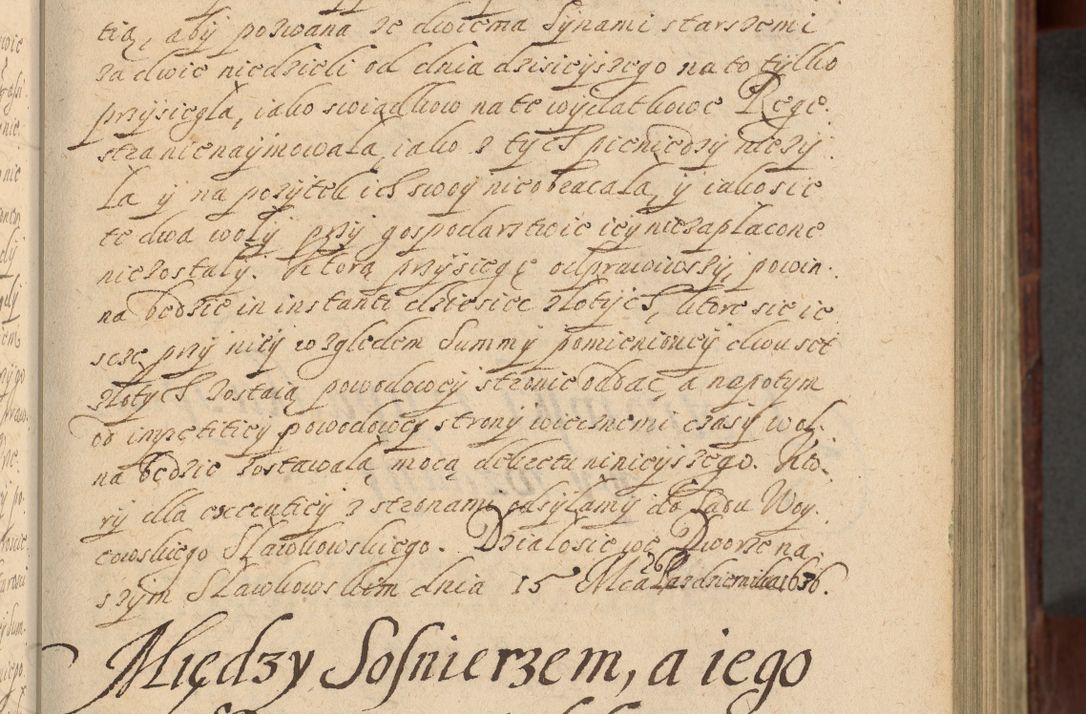 tią, aby pozwana ze dwiema Synami starszemi
za dwie niedzieli od dnia dzisieyszego na to tylko
przysięgła, iako swiadkow na te wydatkowe Rege.
stra nie naymowała, iako z tych pieniędzy nie zy
ła y na pozytek ich swoy nie obracała, y iako sie
te dwa woły przy gospodarstwie iey nie zapłacone
nie zostały. Ktorą przysięgę odprawiwszy, powin.
na będzie in instanti dziesięc złotych, ktore sie ie
szcze przy niey względem Summy pomienioney dwuset
złotych zostaią powodowey stronie oddac, a napotym
od impetitiey powodowey strony wiecznemi czasy wol.
na będzie zostawała mocą dekretu ninieyszego. Kto.
ry dla executiey z stronami odsyłamy do Sądu Woy.
towskiego Sławkowskiego. Działo sie we Dworze na.
szym Sławkowskim dnia 15 Mca Pazdziernika 1636.
26
Między Sosnierzem, a iego